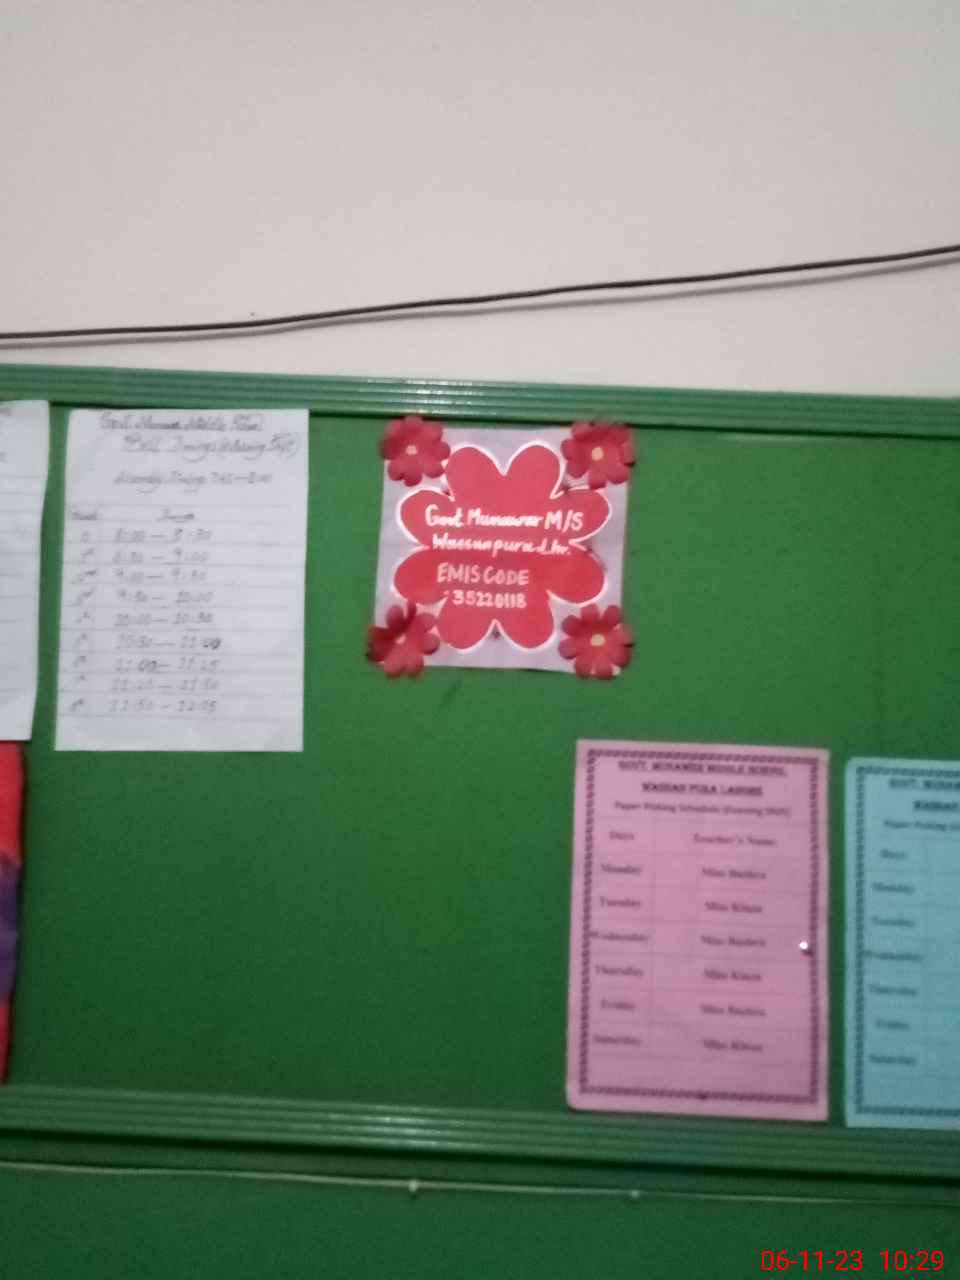 Govt. Munawar Middle School
Bell Timings (Morning Shift)
Assembly Timing 7:45 — 8:00
0 8:00 — 8:30
1st 8:30 — 9:00
2nd 9:00 — 9:30
3rd 9:30 — 10:00
4th 10:00 — 10:30
5th 10:30 — 11:00
6th 11:00 — 11:25
7th 11:25 — 11:50
8th 11:50 — 12:15
Govt. Munawar M/S
Wassanpura Lhr.
EMIS CODE
35220118
GOVT. MUNAWER MIDDLE SCHOOL,
WASSAN PURA LAHORE
Paper Picking Schedule (Evening Shift)
Days Teacher's Name
Monday Miss Bushra
Tuesday Miss Kinza
Wednesday Miss Bushra
Thursday Miss Kinza
Friday Miss Bushra
Saturday Miss Kinza
GOVT.
WASSAN
Paper Picking
Days
Monday
Tuesday
Wednesday
Thursday
Friday
Saturday
06-11-23 10:29